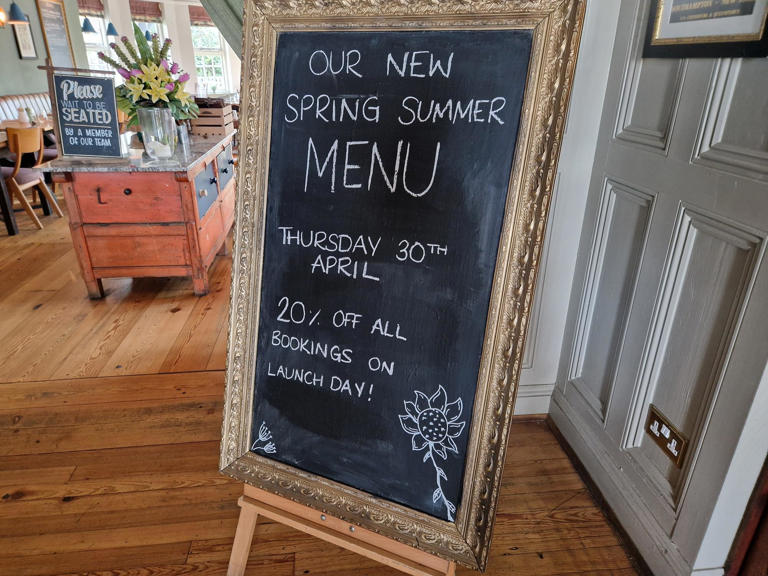 OUR NEW
SPRING SUMMER
MENU
THURSDAY 30TH
APRIL
20% OFF ALL
BOOKINGS ON
LAUNCH DAY!
Please
WAIT TO BE
SEATED
BY A MEMBER
OF OUR TEAM